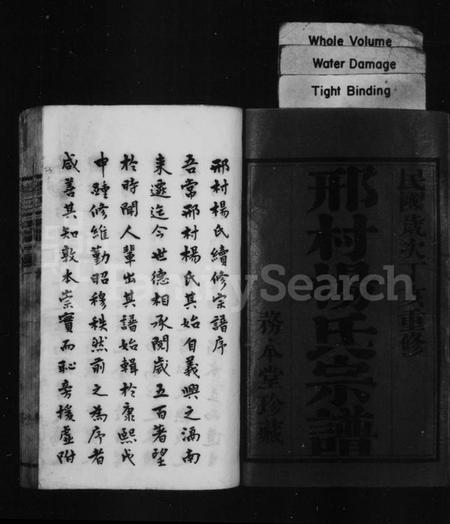 Whole Volume
Water Damage
Tight Binding
民國歲次丁 重修
邢村楊氏宗譜
務本堂珍藏
邢村楊氏續修宗譜序
吾常邢村楊氏其始自義興之滆南
來遷迄今世德相承閱歲五百著望
於時聞人輩出其譜始輯於康熙戊
申踵修維勤昭穆秩然前之為序者
咸善其知敦本崇實而恥旁援虛附
FamilySearch